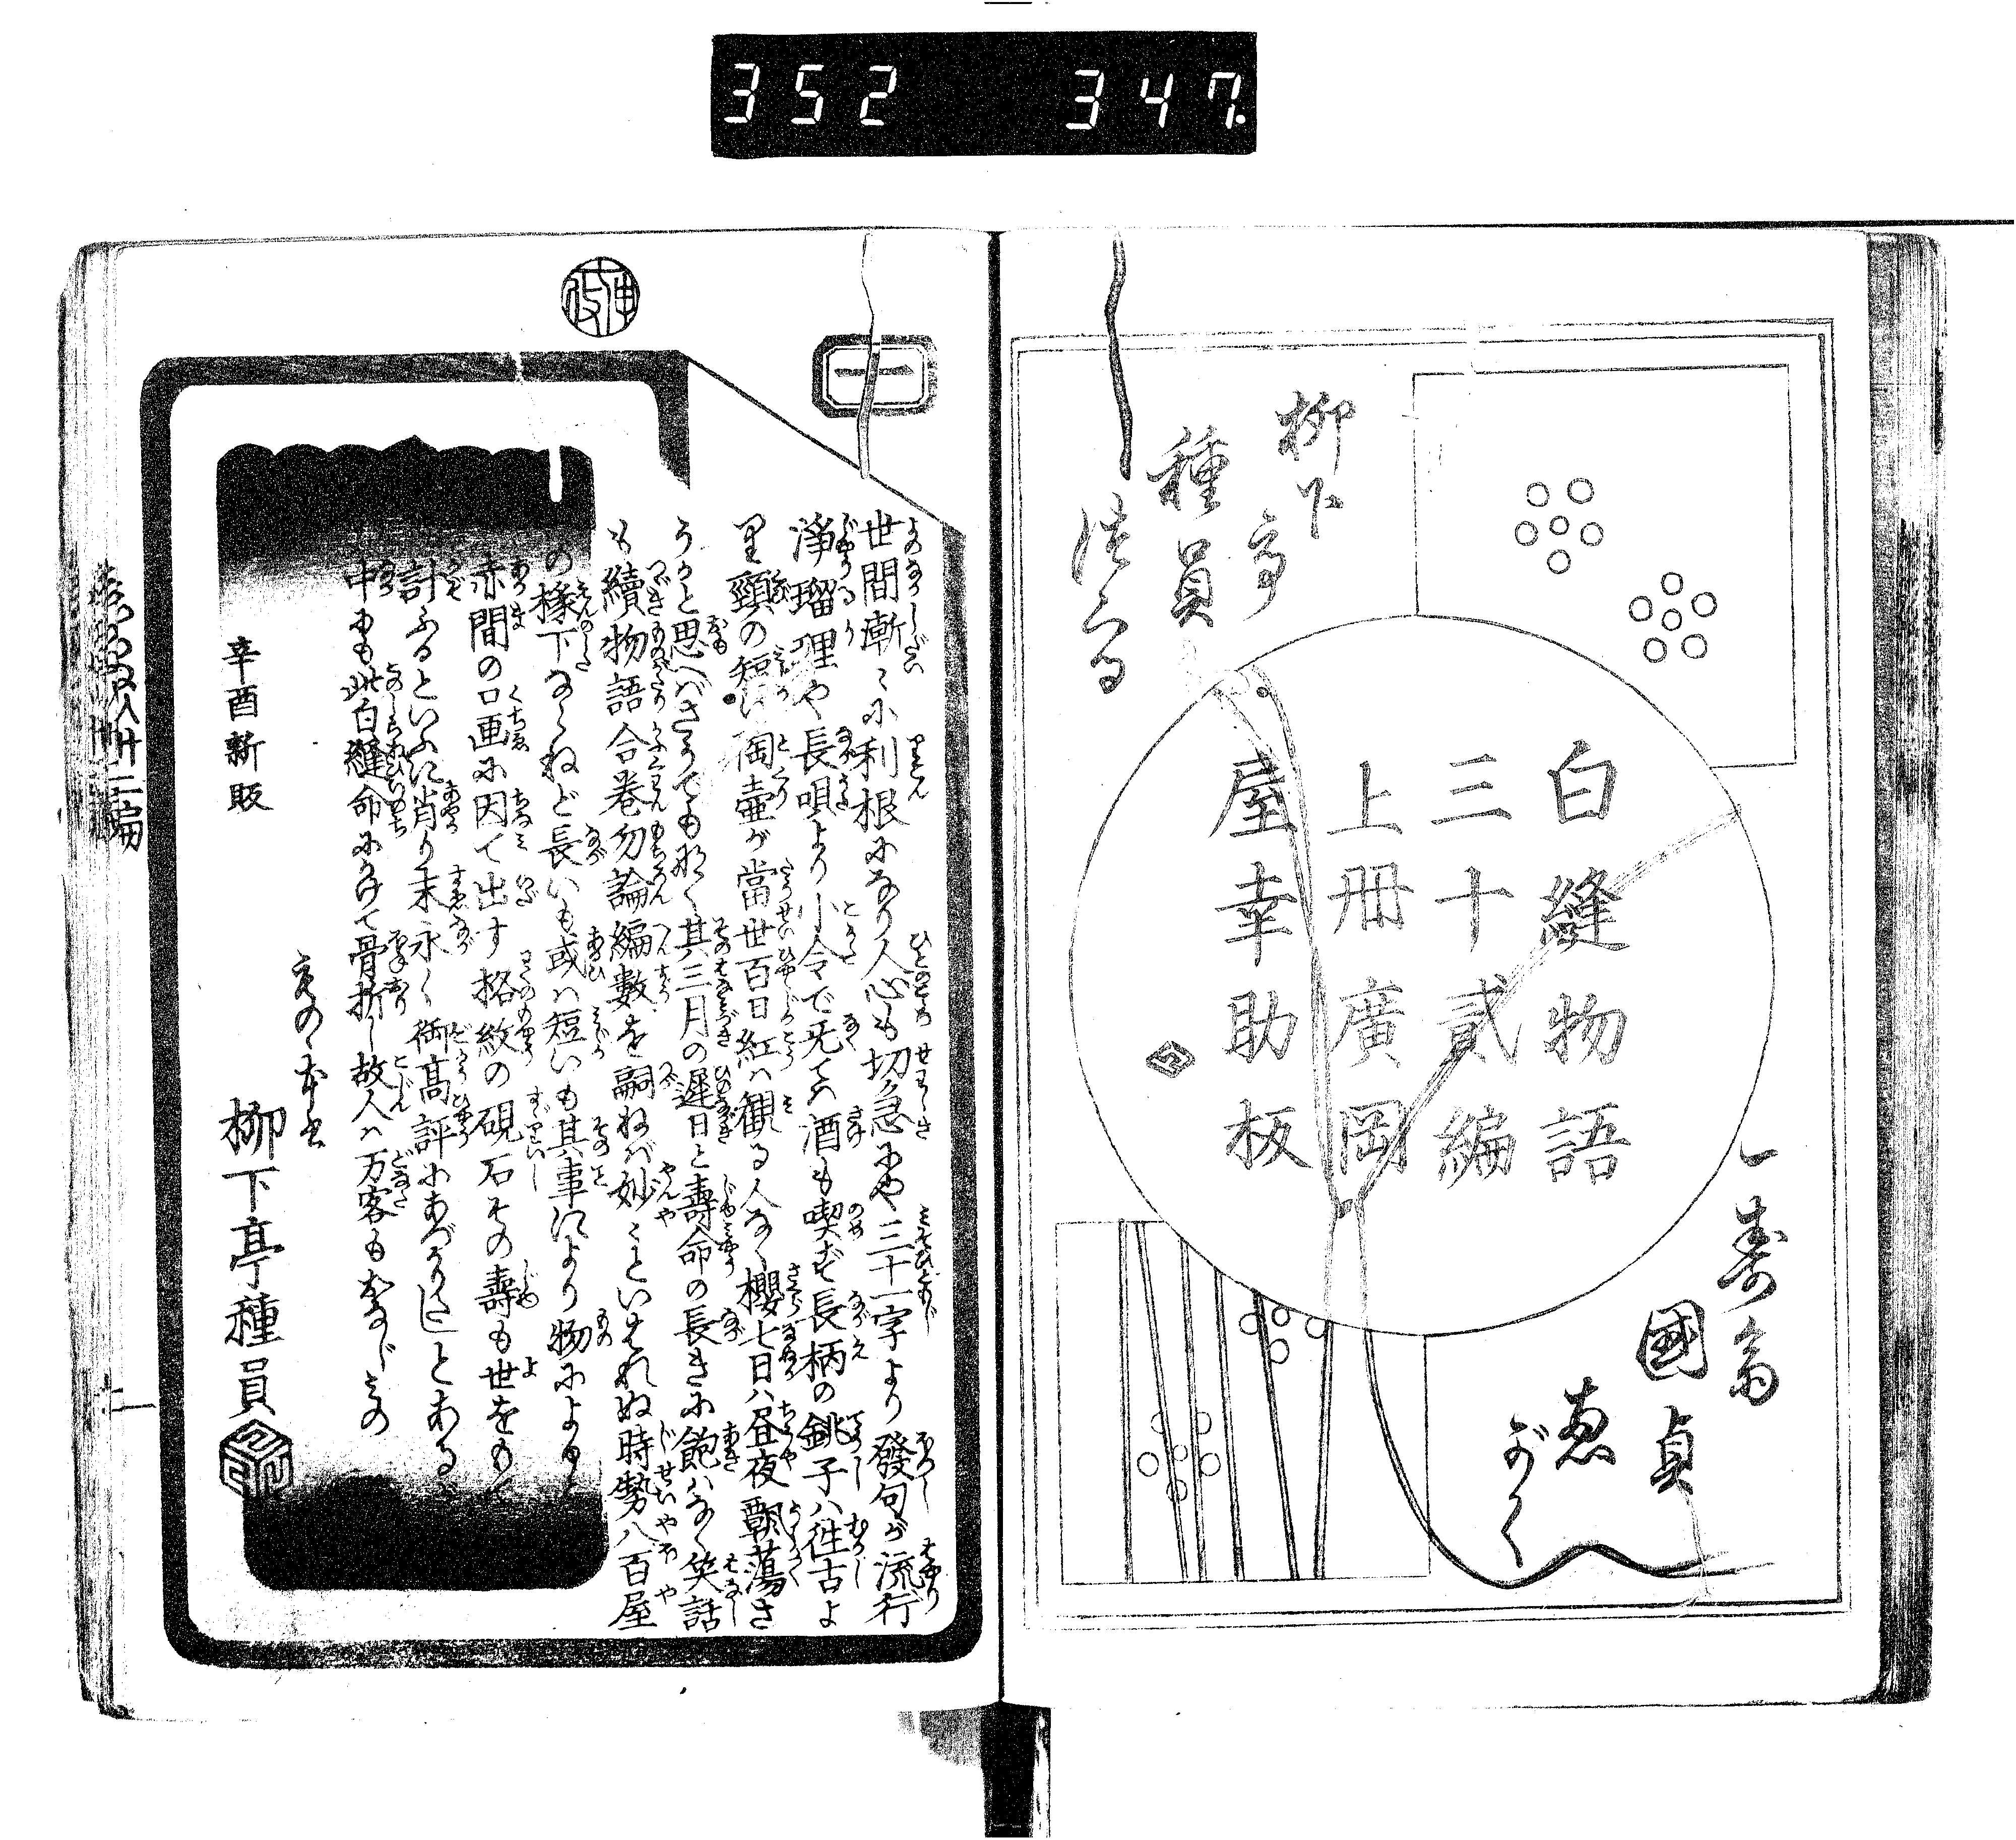 352 347
柳下
亭
種員
白縫物語
三十貳編
上冊廣岡
屋幸助板
一壽斎
國貞
画
がく
一
世間漸々に利根になり人心も切急にや三十一字より發句が流行
浄瑠理や長唄より小令で无ては酒も喫ず長柄の銚子ハ徃古よ
里頸の短い陶壷が當世百日紅ハ観る人なく櫻七日ハ昼夜飜蕩さ
うかと思へばさうでも那く其三月の遲日と壽命の長きに飽ハなく笑話
も續物語合巻勿論編數を嗣ねバ妙々といはれぬ時勢八百屋
の椽下ならねど長いも或ハ短いも其事により物によると
赤間の口画に因て出す格紋の硯石その壽も世をもて
計ふるといふに肖り末永く御高評にあづかりたしとある
中にも此白縫命にかけて骨折し故人ハ万客もおなじみの
柳下亭種員
辛酉新販